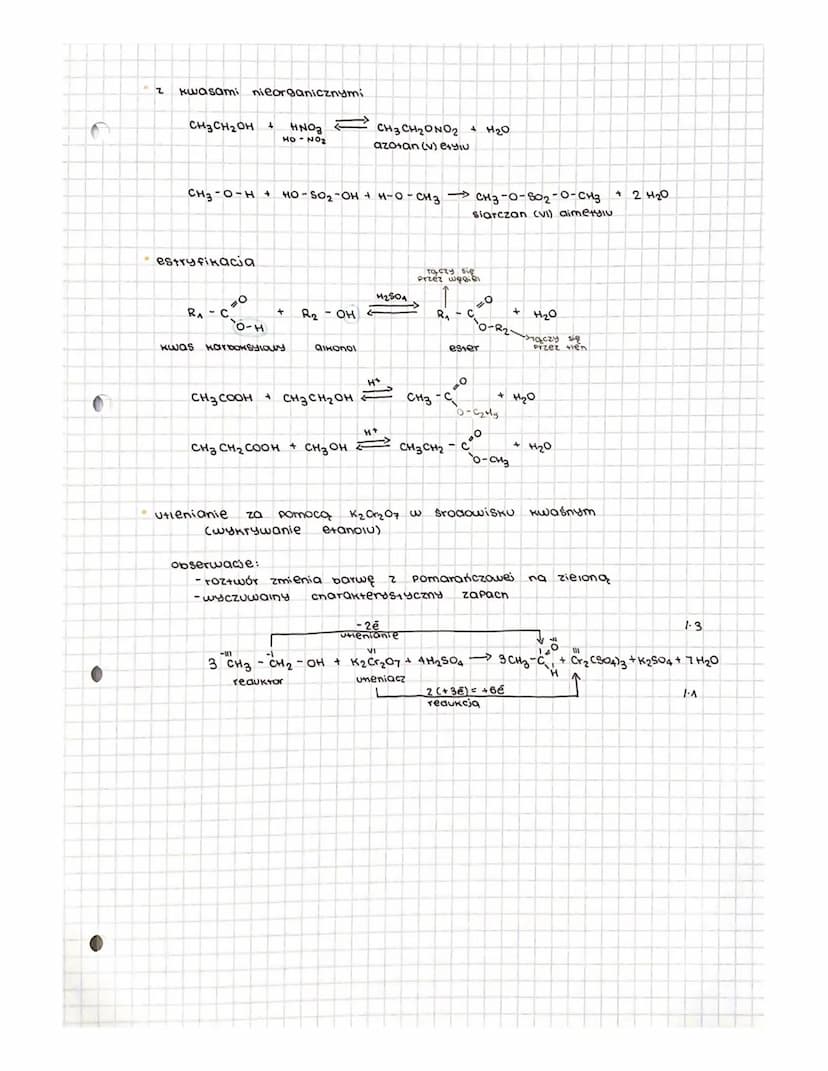 z kwasami nieorganicznymi
CH3CH2OH + HNO3 ⇌ CH3CH2ONO2 + H2O
HO-NO2 azotan (V) etylu
CH3-O-H + HO-SO2-OH + H-O-CH3 → CH3-O-SO2-O-CH3 + 2 H2O
siarczan (VI) dimetylu
estryfikacja
łączy się
przez węgiel
H2SO4
R1-C=O O-H + R2-OH ⇌ R1-C=O O-R2 + H2O
łączy się
przez tlen
kwas karboksylowy alkohol ester
H+
CH3COOH + CH3CH2OH ⇌ CH3-C=O O-C2H5 + H2O
H+
CH3CH2COOH + CH3OH ⇌ CH3CH2-C=O O-CH3 + H2O
utlenianie za pomocą K2Cr2O7 w środowisku kwaśnym
(wykrywanie etanolu)
obserwacje:
- roztwór zmienia barwę z pomarańczowej na zieloną
- wyczuwalny charakterystyczny zapach
-2ē /·3
utlenianie
-III -I VI I -II III
3 CH3-CH2-OH + K2Cr2O7 + 4H2SO4 → 3CH3-C=O H + Cr2(SO4)3 + K2SO4 + 7H2O
reduktor utleniacz
2(+3ē) = +6ē /·1
redukcja